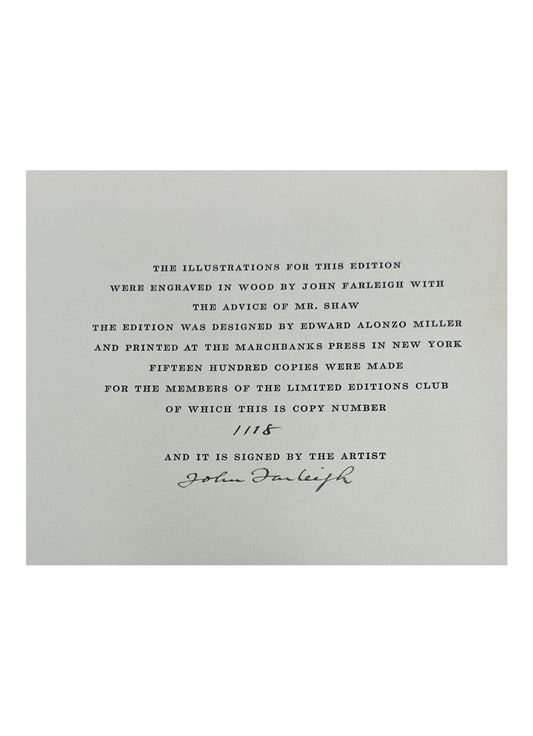 THE ILLUSTRATIONS FOR THIS EDITION
WERE ENGRAVED IN WOOD BY JOHN FARLEIGH WITH
THE ADVICE OF MR. SHAW
THE EDITION WAS DESIGNED BY EDWARD ALONZO MILLER
AND PRINTED AT THE MARCHBANKS PRESS IN NEW YORK
FIFTEEN HUNDRED COPIES WERE MADE
FOR THE MEMBERS OF THE LIMITED EDITIONS CLUB
OF WHICH THIS IS COPY NUMBER
1118
AND IT IS SIGNED BY THE ARTIST
John Farleigh